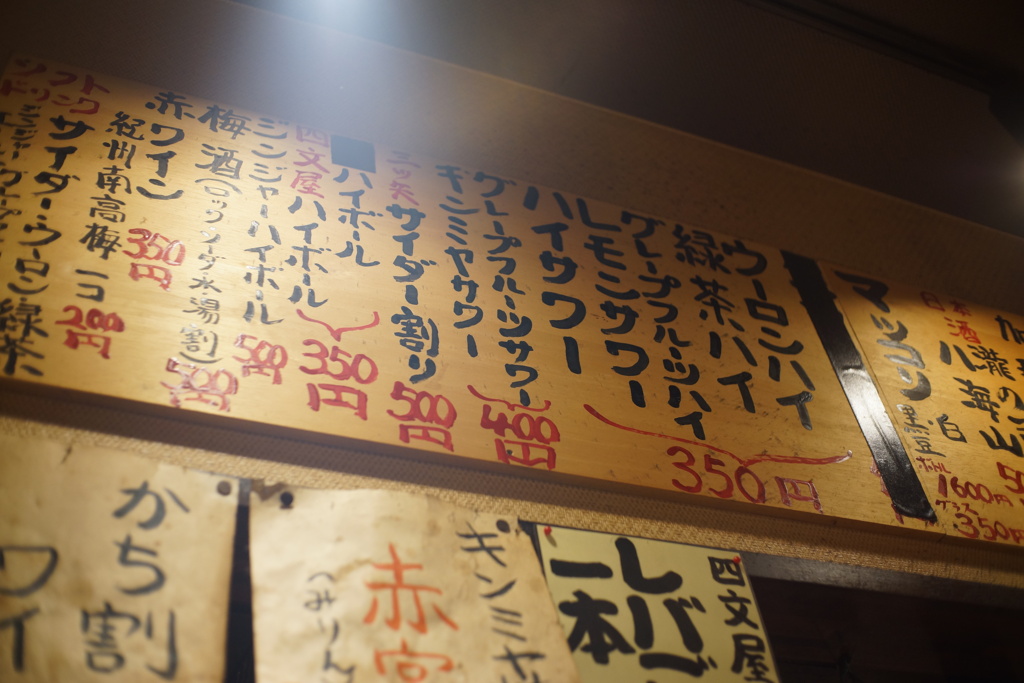 マッコリ
黒豆
白
ボトル
1600円
グラス
350円
日本酒
八海山
ウーロンハイ
緑茶ハイ
グレープフルーツハイ
レモンサワー
ハイサワー
350円
グレープフルーツサワー
キンミヤサワー
400円
三ッ矢
サイダー割り
500円
ハイボール
四文屋
ハイボール
350円
ジンジャーハイボール
梅酒(ロックソーダ水湯割)
赤ワイン
350円
紀州南高梅一コ
200円
ソフト
ドリンク
サイダー・ウーロン緑茶
四文屋
レバー
一本
キンミヤ
赤
(みりん
かち割
ワイ